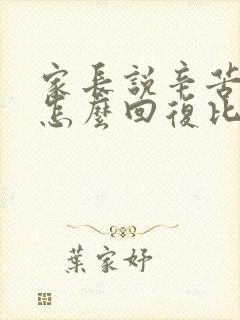 家長說辛苦
怎麼回復比
葉家妤